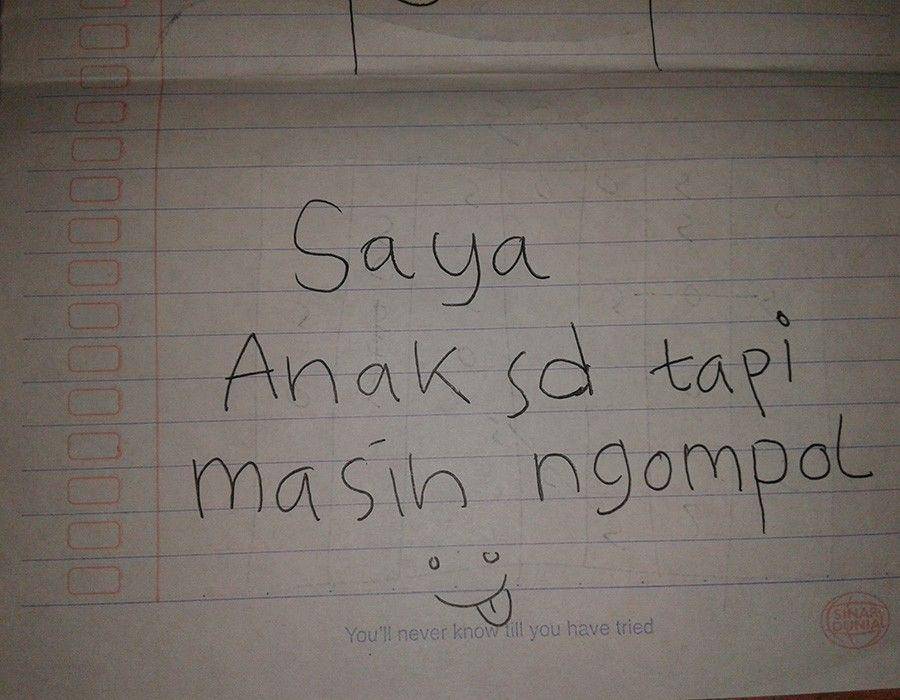 Saya
Anak sd tapi
masih ngompol
You'll never know till you have tried
SINAR DUNIA